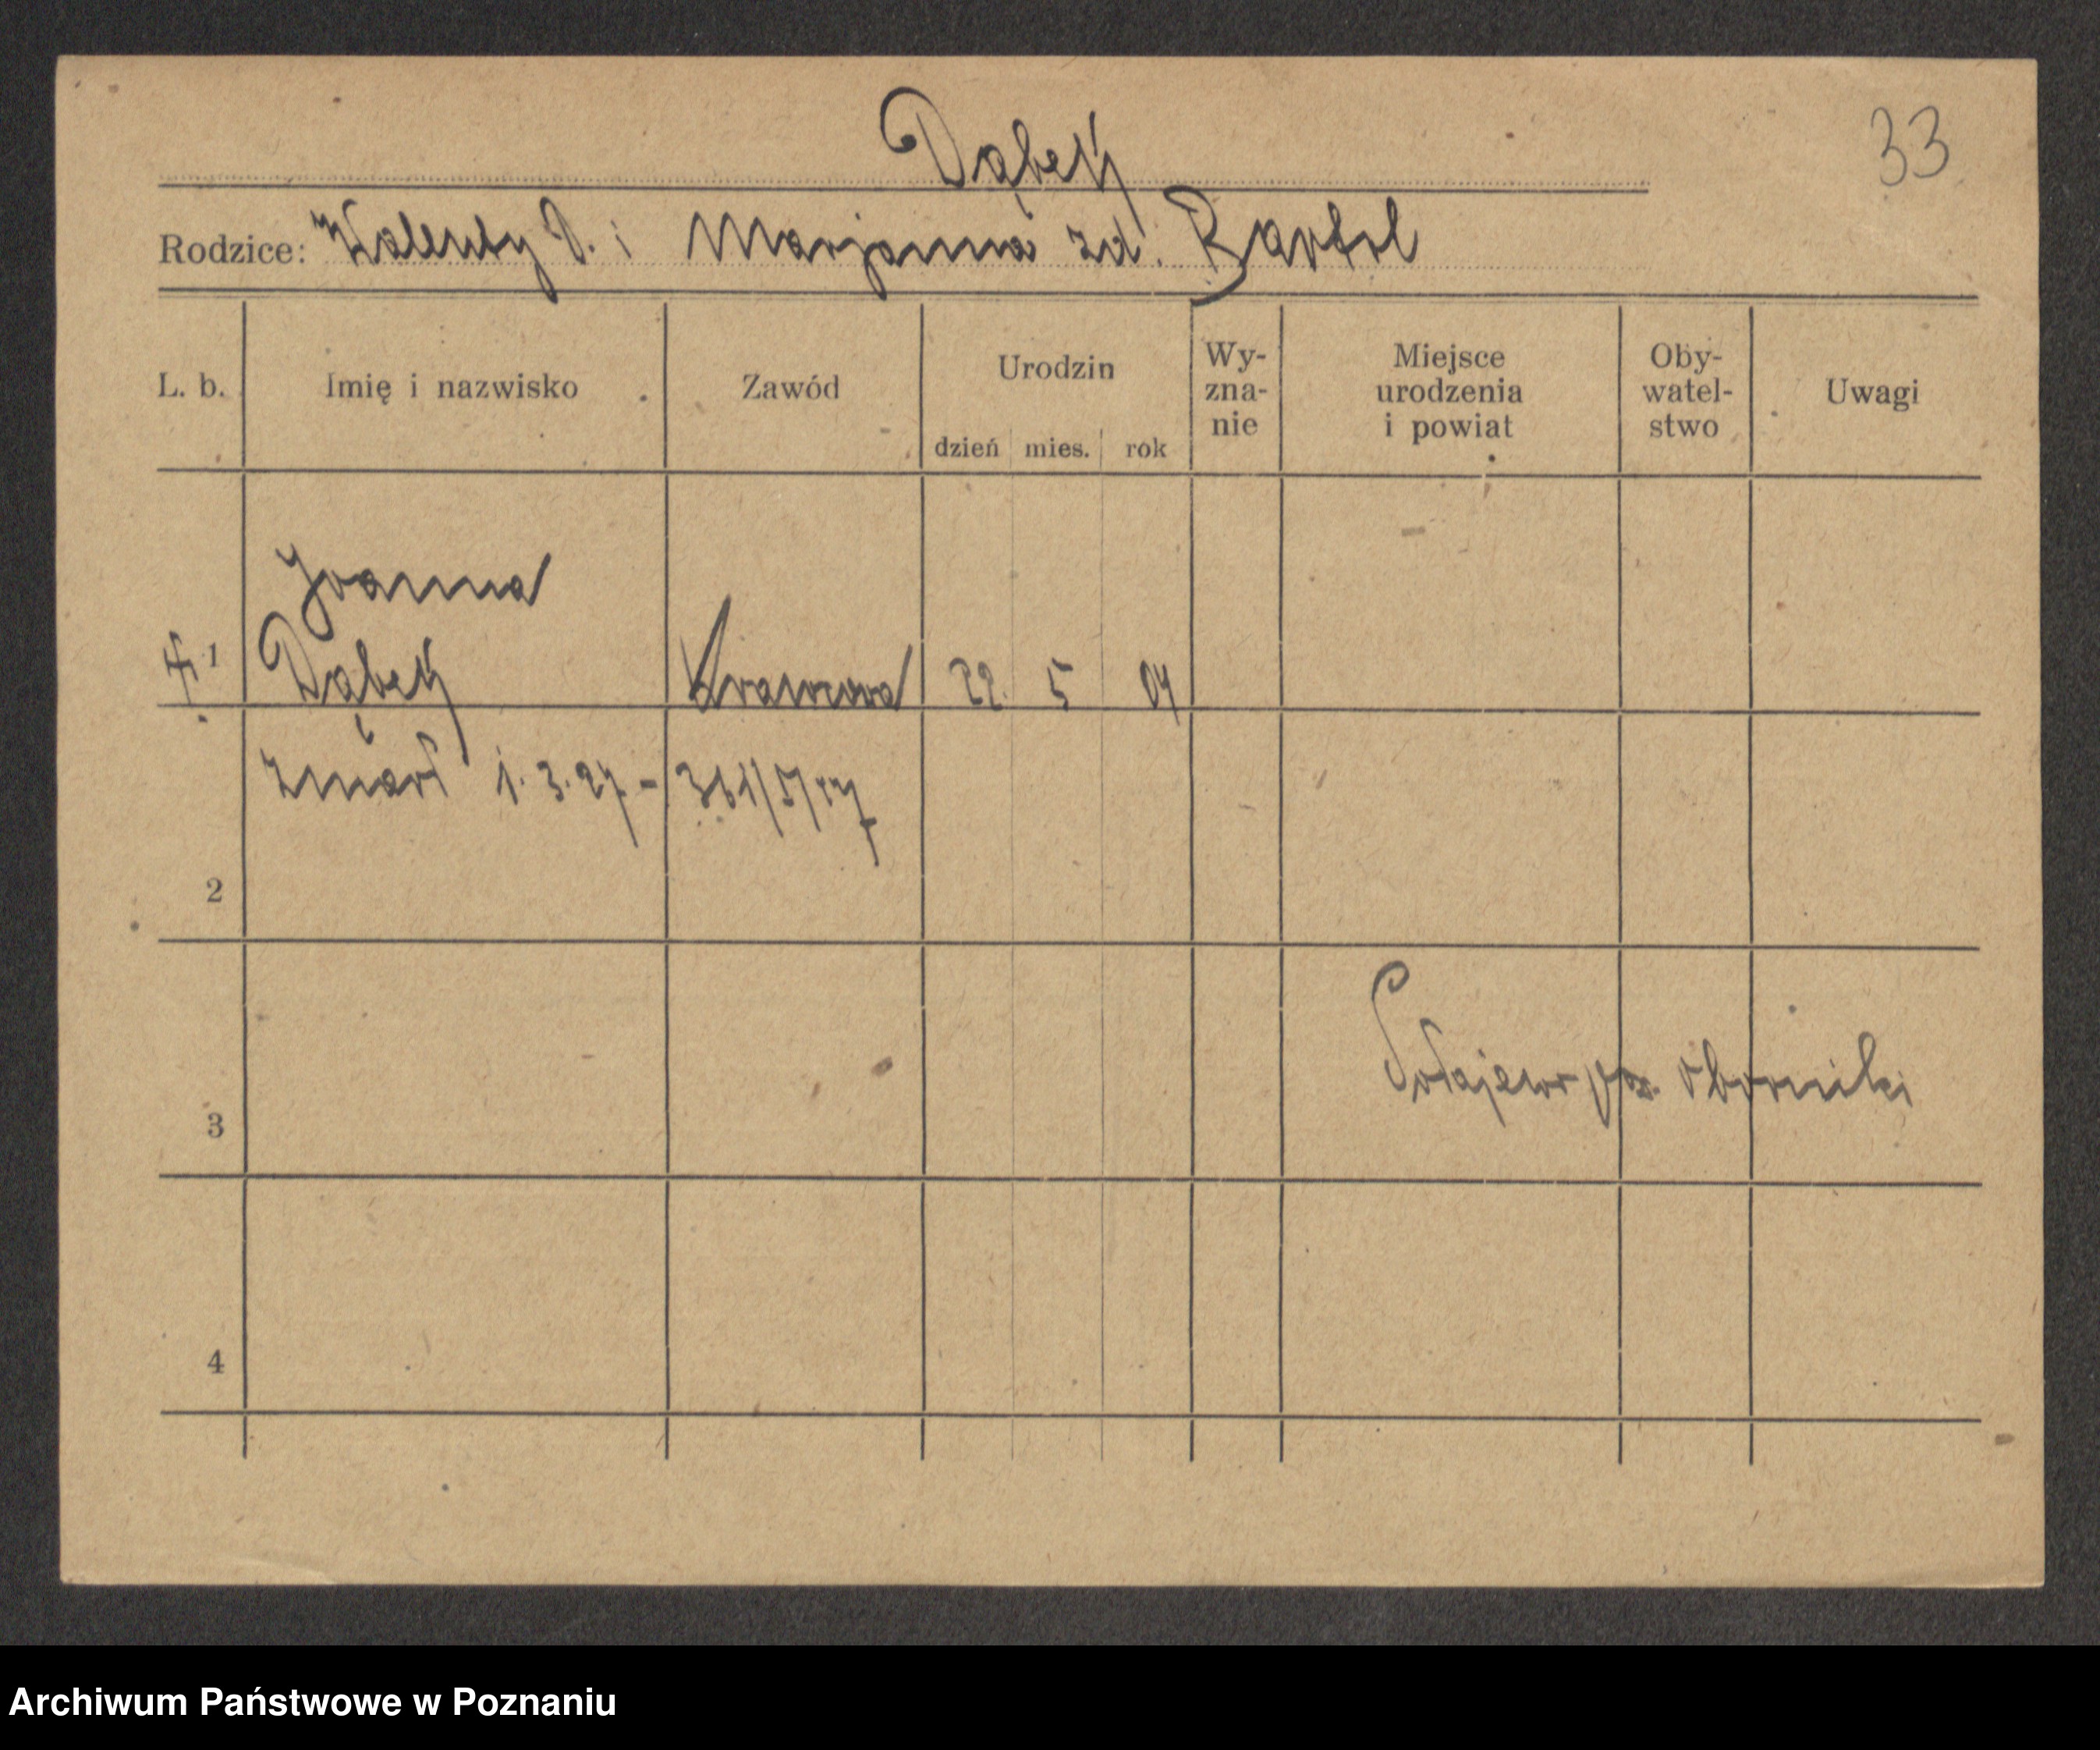 Dąbek
33
Rodzice: Walenty D. i Marjanna zd. Bartol
L. b. Imię i nazwisko Zawód Urodzin dzień mies. rok Wy-zna-nie Miejsce urodzenia i powiat Oby-watel-stwo Uwagi
Joanna
1 Dąbek krawcowa 22. 5 04
zmarł 1. 3. 27 -
2
Połajewo pow. Oborniki
3
4
Archiwum Państwowe w Poznaniu